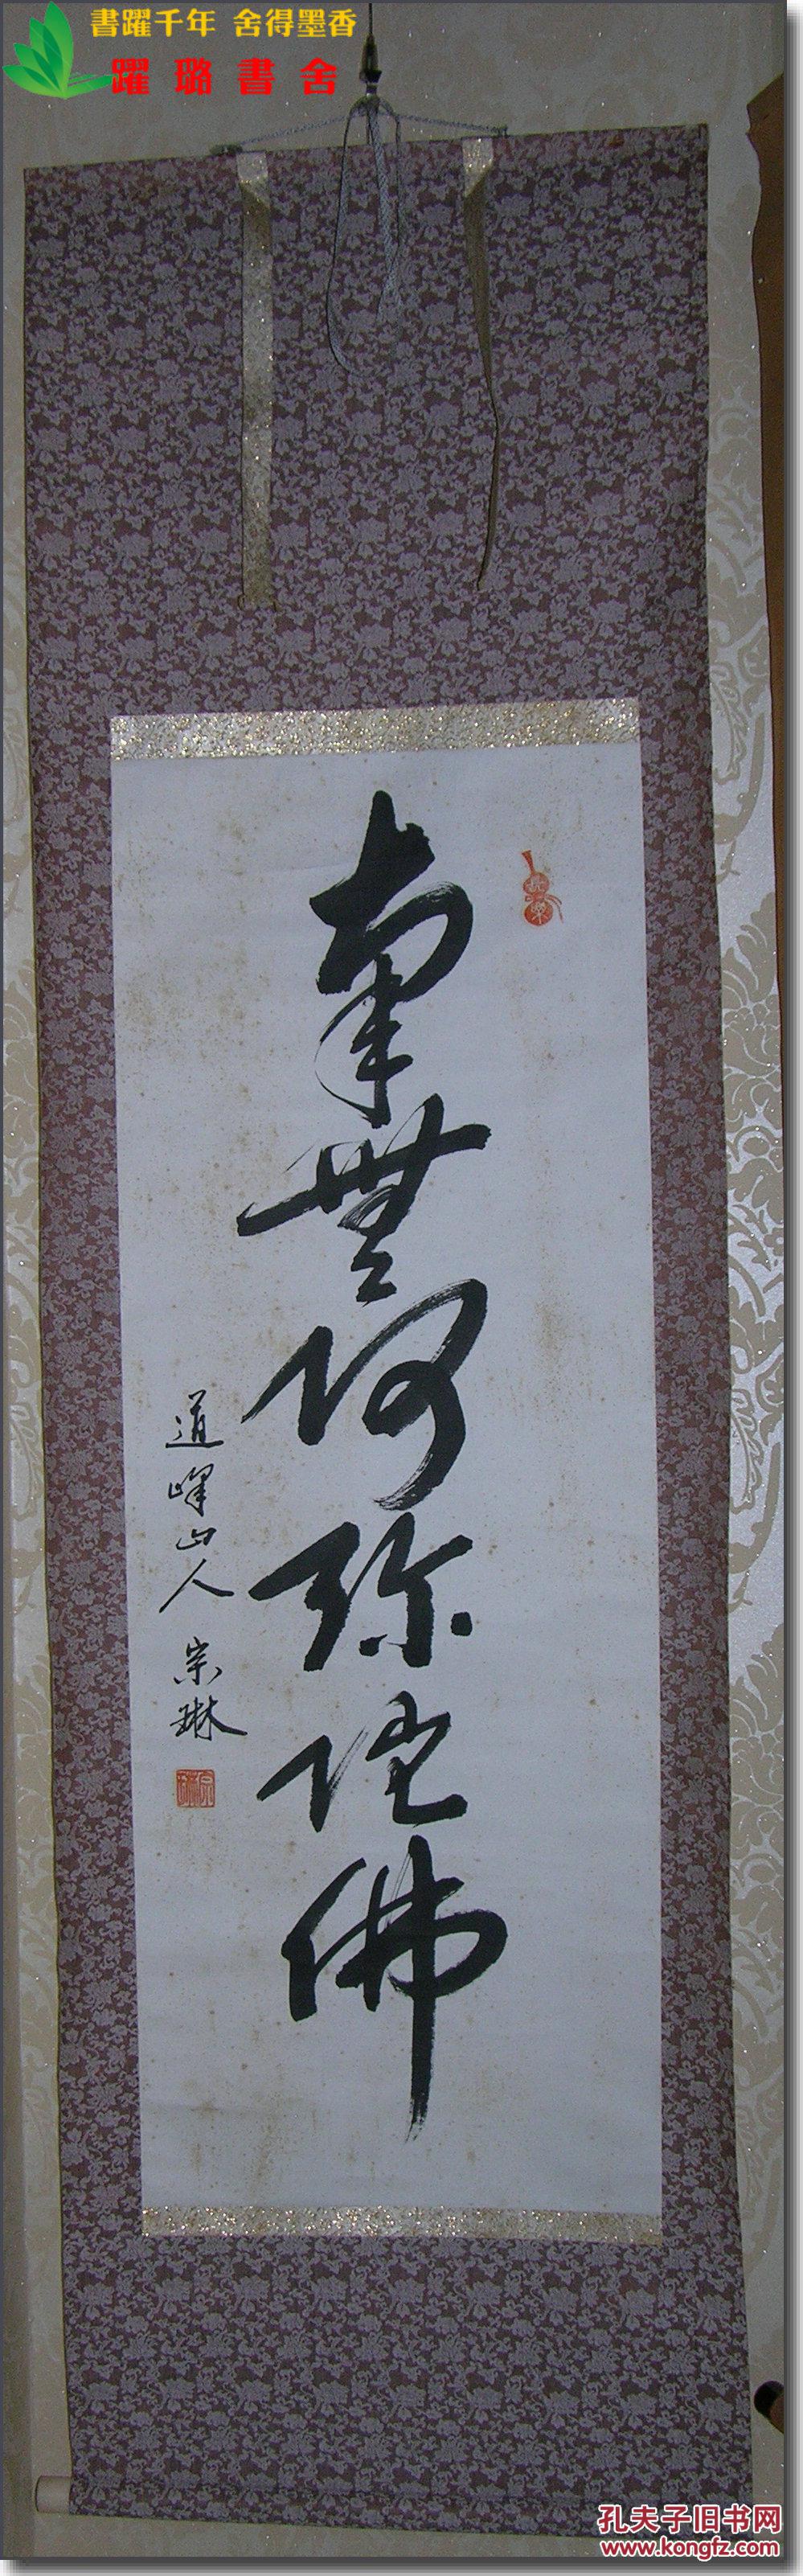 書躍千年 舍得墨香
躍璐書舍
南無阿弥陀佛
道峰山人 宗琳
孔夫子旧书网
www.kongfz.com